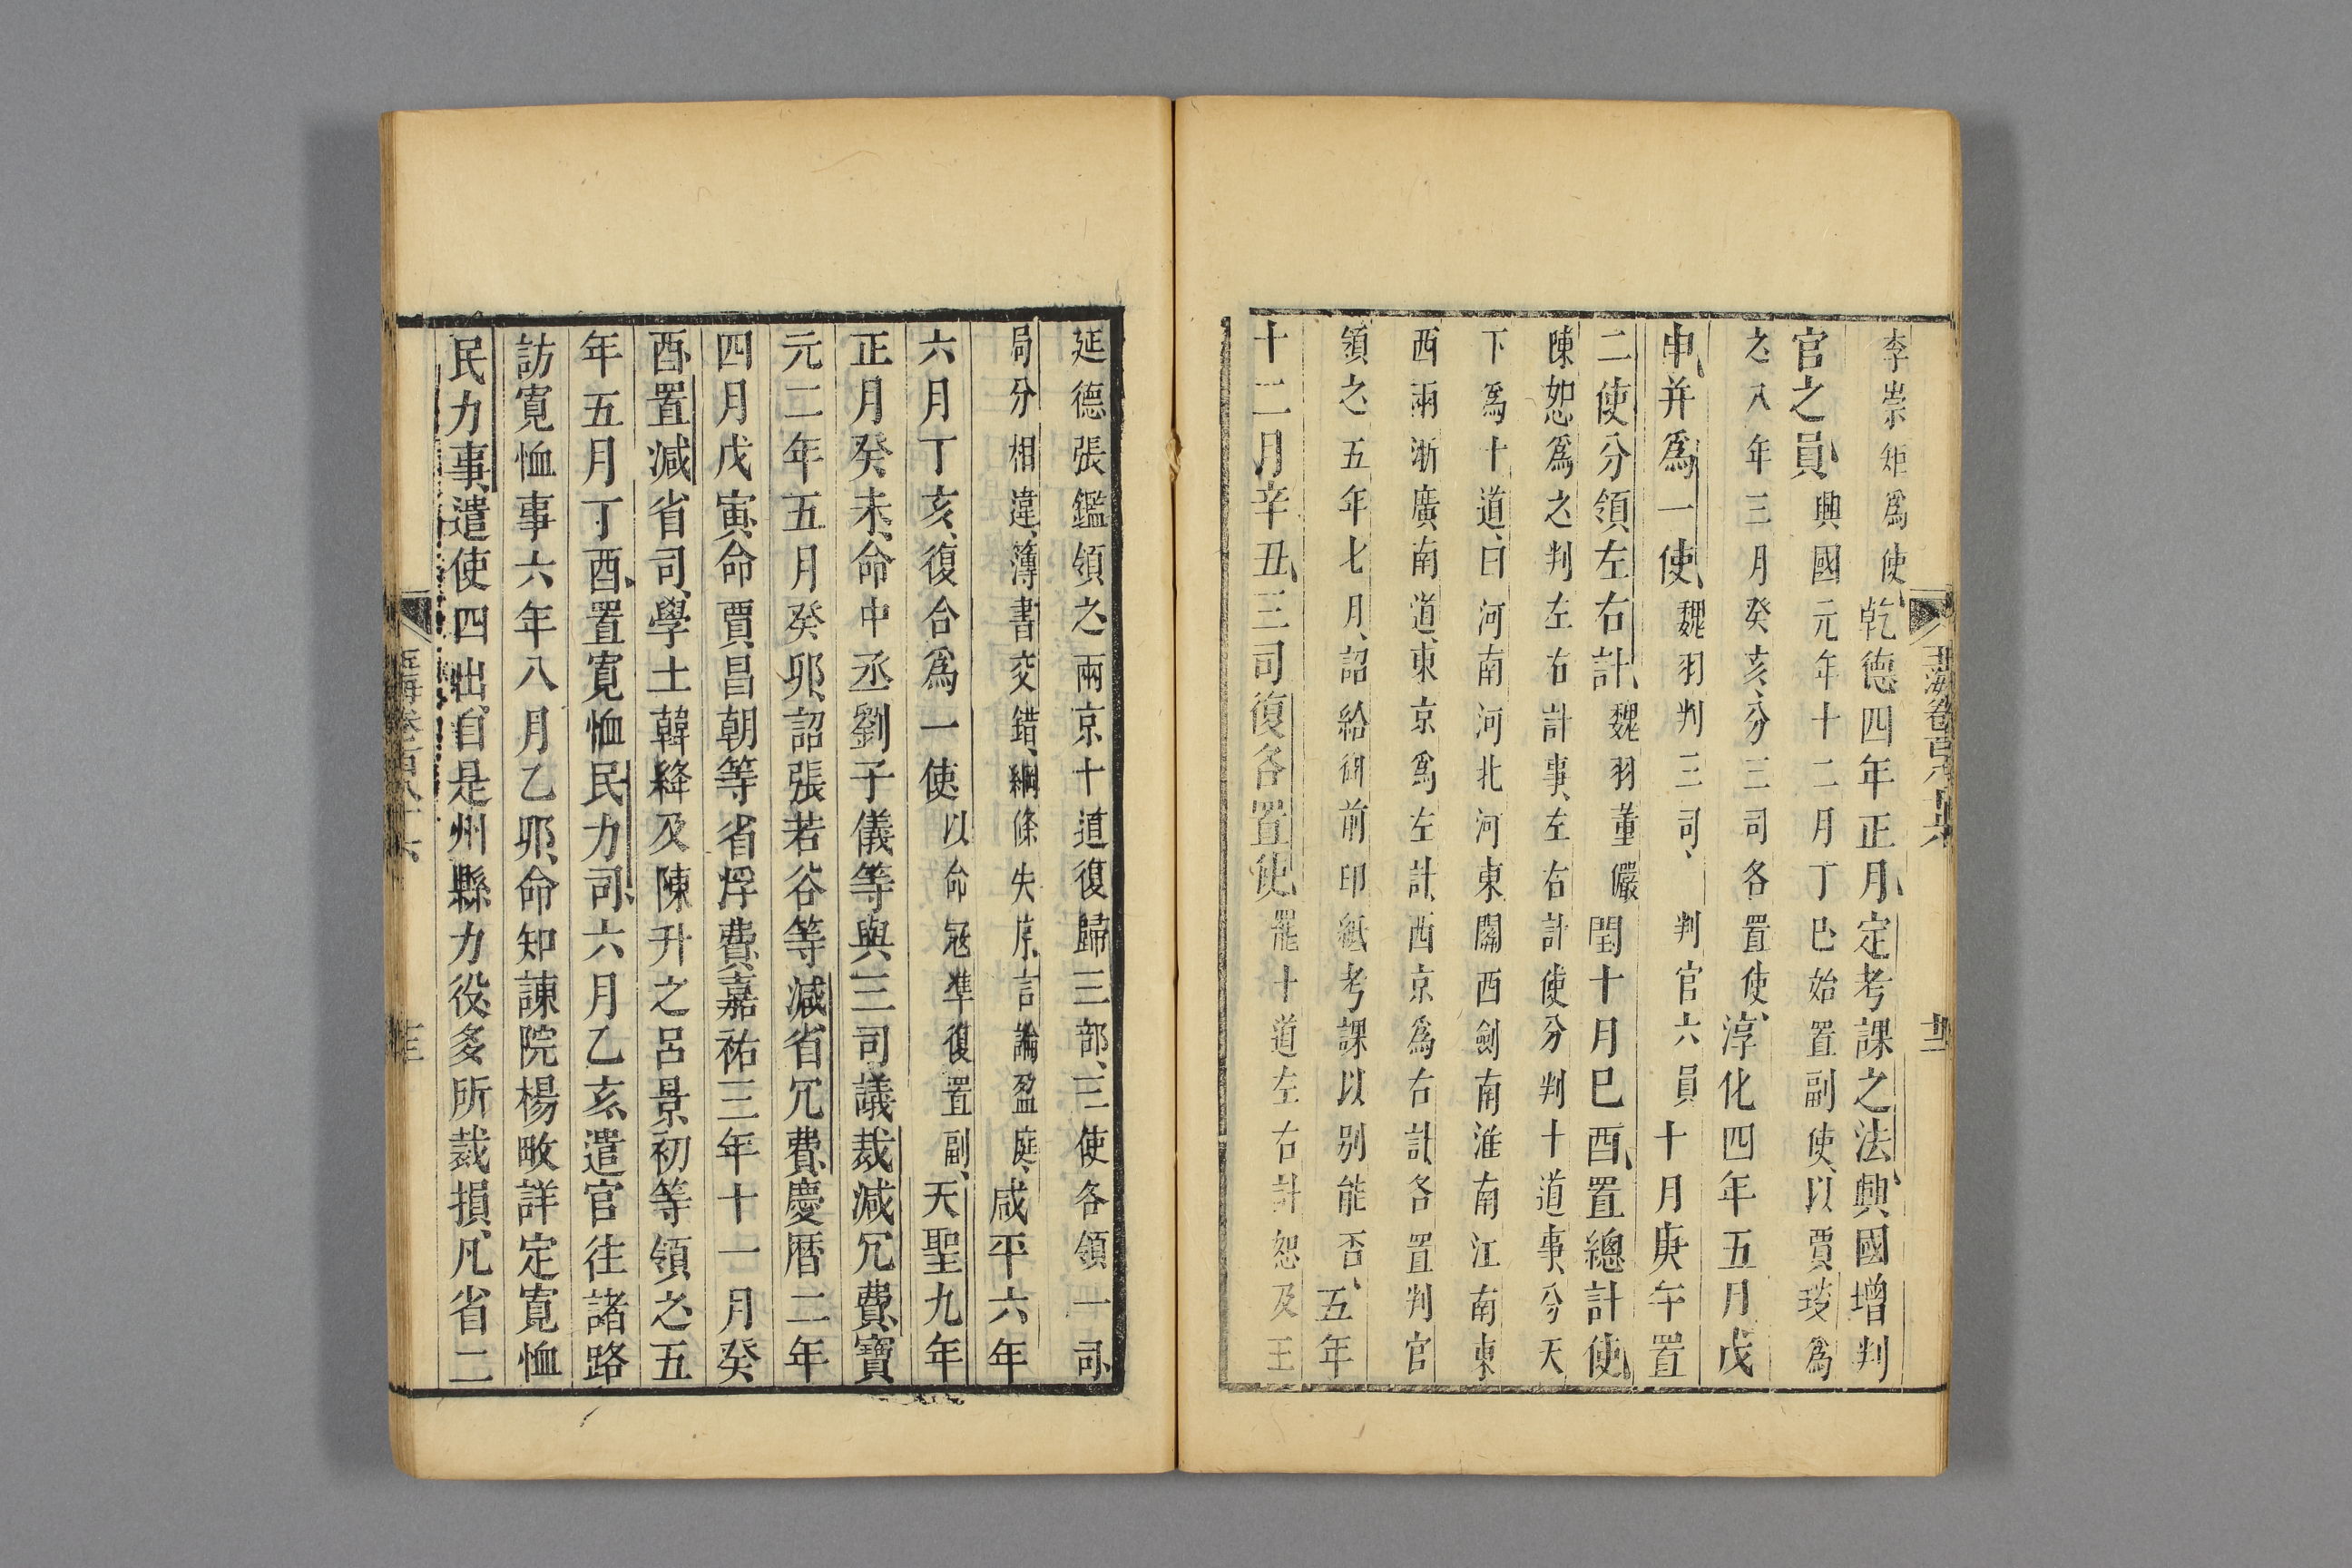 李崇矩爲使乾德四年正月定考課之法興國增判
官之員興國元年十二月丁巳始置副使以賈琰爲
之八年三月癸亥分三司各置使淳化四年五月戊
申并爲一使魏羽判三司判官六員十月庚午置
二使分領左右計魏羽董儼閏十月巳酉置總計使
陳恕爲之判左右計事左右計使分判十道事分天
下爲十道曰河南河北河東關西劍南淮南江南東
西兩浙廣南道東京爲左計西京爲右計各置判官
領之五年七月詔給御前印紙考課以别能否五年
十二月辛丑三司復各置使罷十道左右計恕及王
延德張鑑領之兩京十道復歸三部三使各領一司
局分相違簿書交錯綱條失序言論盈庭咸平六年
六月丁亥復合爲一使以命冦準復置副天聖九年
正月癸未命中丞劉子儀等與三司議裁減冗費寶
元二年五月癸卯詔張若谷等減省冗費慶曆二年
四月戊寅命賈昌朝等省浮費嘉祐三年十一月癸
酉置減省司學士韓絳及陳升之呂景初等領之五
年五月丁酉置寬恤民力司六月乙亥遣官往諸路
訪寬恤事六年八月乙卯命知諫院楊畋詳定寬恤
民力事遣使四出自是州縣力役多所裁損凡省二